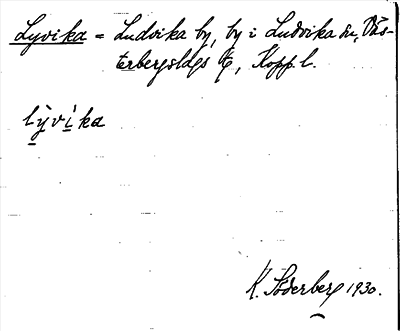 Lyvika = Ludvika by, by i Ludvika sn, Väs-
terbergsldgs tg, Kopp. l.
lỳvìka
K. Söderberg 1930.